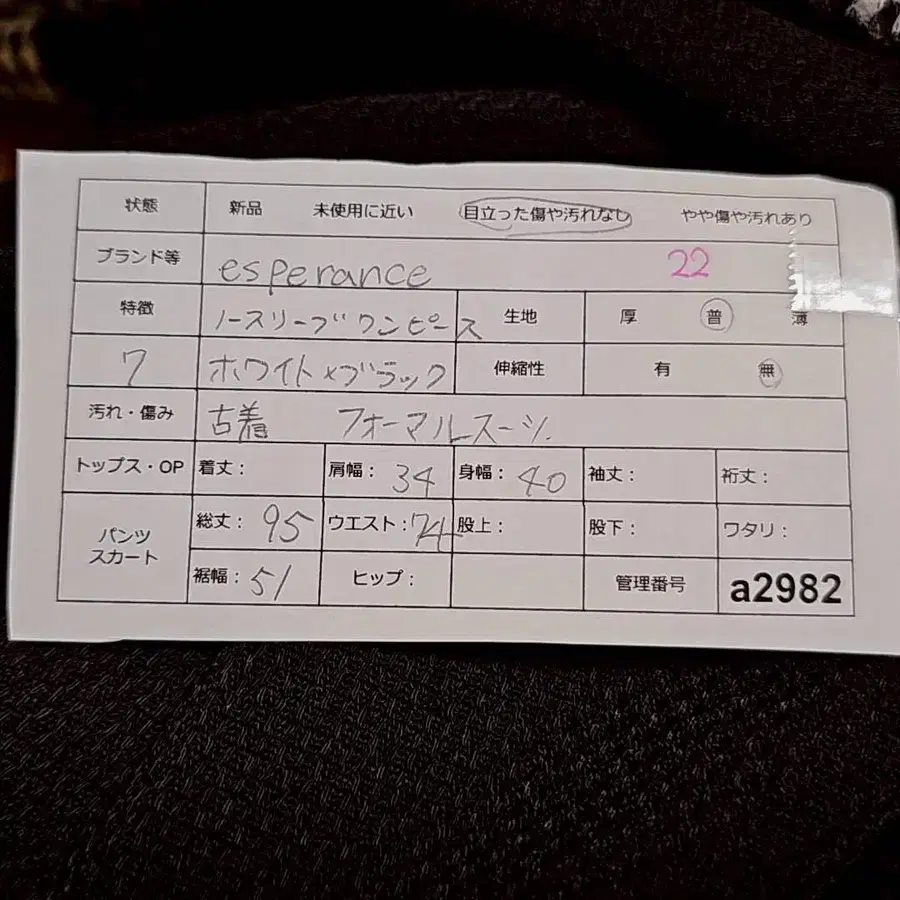 状態 新品 未使用に近い 目立った傷や汚れなし やや傷や汚れあり
ブランド等 esperance 22
特徴 ノースリーブワンピース 生地 厚 普 薄
7 ホワイト×ブラック 伸縮性 有 無
汚れ・傷み 古着 フォーマルスーツ.
トップス・OP 着丈： 肩幅： 34 身幅： 40 袖丈： 裄丈：
パンツ スカート 総丈： 95 ウエスト： 74 股上： 股下： ワタリ：
裾幅： 51 ヒップ： 管理番号 a2982